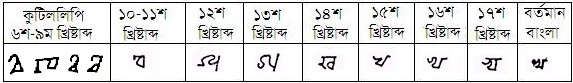 কুটিললিপি ৬শ-৯ম খ্রিষ্টাব্দ
১০-১১শ খ্রিষ্টাব্দ
১২শ খ্রিষ্টাব্দ
১৩শ খ্রিষ্টাব্দ
১৪শ খ্রিষ্টাব্দ
১৫শ খ্রিষ্টাব্দ
১৬শ খ্রিষ্টাব্দ
১৭শ খ্রিষ্টাব্দ
বর্তমান বাংলা
খ